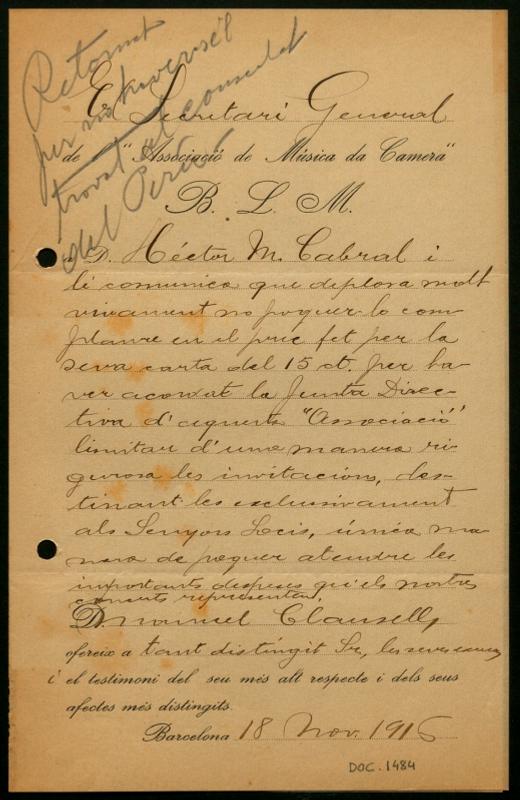 Retornat
per no haverse'l
trovat al consulat
del Perú
El Secretari General
de "Associació de Música da Camera"
B. L. M.
a D. Héctor M. Cabral i
li comunica que deplora molt
vivament no poguer-lo com-
plaure en el prec fet per la
seva carta del 15 ct. per ha-
ver acordat la Junta Direc-
tiva d'aquesta "Associació"
limitar d'una manera ri-
gurosa les invitacions, des-
tinant les exclusivament
als Senyors Socis, única ma-
nera de poguer atendre les
importants despeses qu'els nostres
concerts representen.
D. Manuel Clausells,
ofereix a tant distingit Sr, les seves
i el testimoni del seu més alt respecte i dels seus
afectes més distingits.
Barcelona 18 Nov. 1916
DOC. 1484